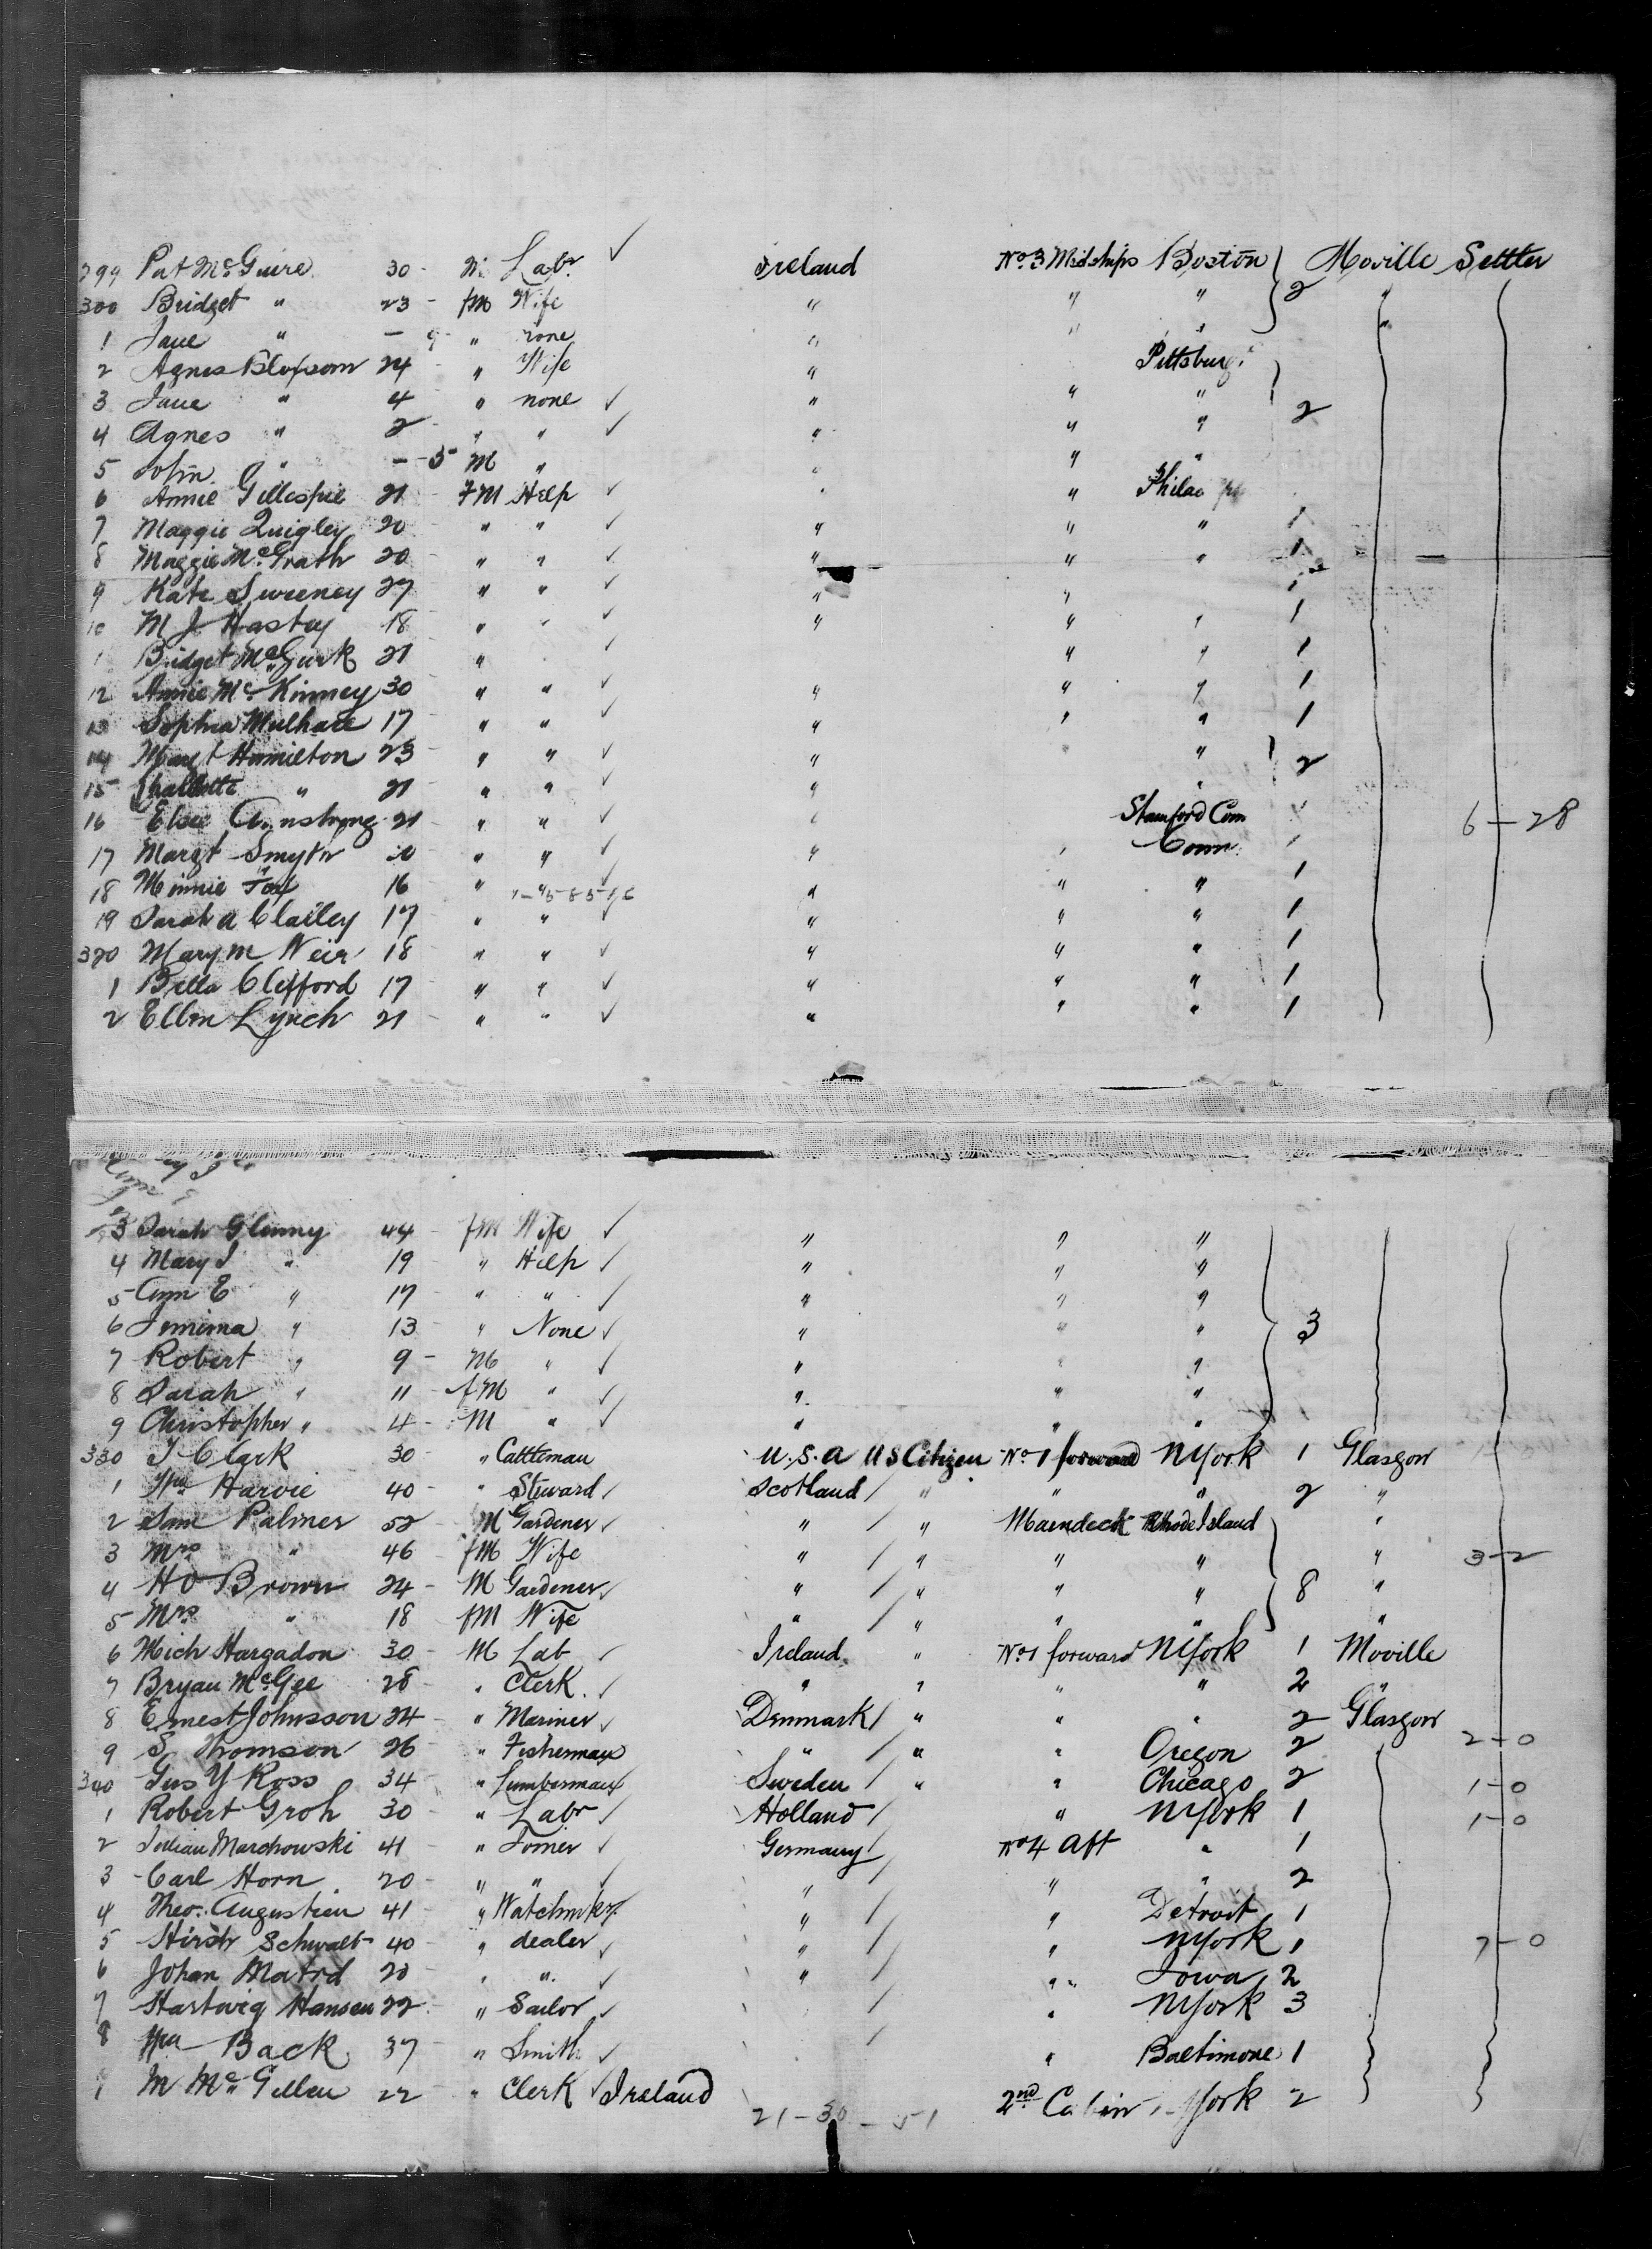 299 Pat McGuire 30 - M Labr ✓ Ireland No. 3 Midships Boston Moville Settler
300 Bridget " 23 - fM Wife " " " 2 "
1 Jane " - 9 - " none " " " "
2 Agnes Blossom 24 - " Wife " Pittsburg
3 Jane " 4 " none ✓ " " "
4 Agnes " 2 - " " ✓ " " " 2
5 John " - 5 M " " " "
6 Annie Gillespie 21 - FM Help ✓ " "
7 Maggie Quigley 20 - " " ✓ " " " 1
8 Maggie McGrath 20 - " " ✓ " " " 1
9 Kate Sweeney 27 " " ✓ " "
10 M J Hastey 18 " " ✓ " " " 1
1 Bridget McGurk 21 " ✓ " " 1
12 Annie McKinney 30 " " ✓ " " " 1
13 Sophia Mulhare 17 " " ✓ " " " 1
14 Margt Hamilton 23 " " ✓ " " " 2
15 " 21 " " ✓ " "
16 Elsie Armstrong 21 " " ✓ " Stamford Conn 6-28
17 Margt Smyth " " ✓ " " Conn
18 Minnie Fox 16 " " " " " 1
19 Sarah A Clailey 17 " " ✓ " " " 1
320 Mary M Weir 18 " " ✓ " " " 1
1 Bella Clifford 17 " " ✓ " " " 1
2 Ellen Lynch 21 " " ✓ " " " 1
3 Sarah Glenny 44 - fM Wife ✓ " " "
4 Mary J " 19 " Help ✓ " " "
5 Ann E " 17 - " " ✓ " " "
6 Jemima " 13 " None ✓ " " " 3
7 Robert " 9 - M " ✓ " " "
8 Sarah " 11 - fM " ✓ " " "
9 Christopher " 4 - M " ✓ " " "
330 J Clark 30 - " Cattleman U.S.A US Citizen No. 1 forward NYork 1 Glasgow
1 Wm Harvie 40 - " Steward ✓ Scotland / " " " 2 "
2 Sam Palmer 52 - M Gardener ✓ " / " Maindeck Rhode Island "
3 Mrs " 46 - fM Wife " / " " " " 3-2
4 H O Brown 24 - M Gardener ✓ " / " " " 8 "
5 Mrs " 18 - fM Wife " / " " " "
6 Mich Hargadon 30 - M Lab ✓ Ireland " No1 forward NYork 1 Moville
7 Bryan McGee 28 - " Clerk ✓ " " " " 2 "
8 Ernest Johnsson 24 - " Mariner ✓ Denmark / " " " 2 Glasgow
9 S Thomson 26 - " Fisherman " / " " Oregon 2 2-0
340 Gus Y Ross 34 - " Lumberman Sweden / " " Chicago 2 1-0
1 Robert Groh 30 - " Labr ✓ Holland / " NYork 1 1-0
2 Julian Marchowski 41 - " Joiner ✓ Germany / No 4 Aft " 1
3 Carl Horn 20 - " " ✓ " / " " 2
4 Theo. Augustien 41 - " Watchmkr " / " Detroit 1
5 Hirsh Schwalb 40 - " dealer ✓ " / " NYork 1 7-0
6 Johan 20 - " " ✓ " / " Iowa 2
7 Hartwig Hansen 22 " Sailor ✓ / " NYork 3
8 Wm Back 37 " Smith ✓ / " Baltimore 1
1 M McGillen 22 - " Clerk ✓ Ireland 2nd Cabin York 2
21-30-51